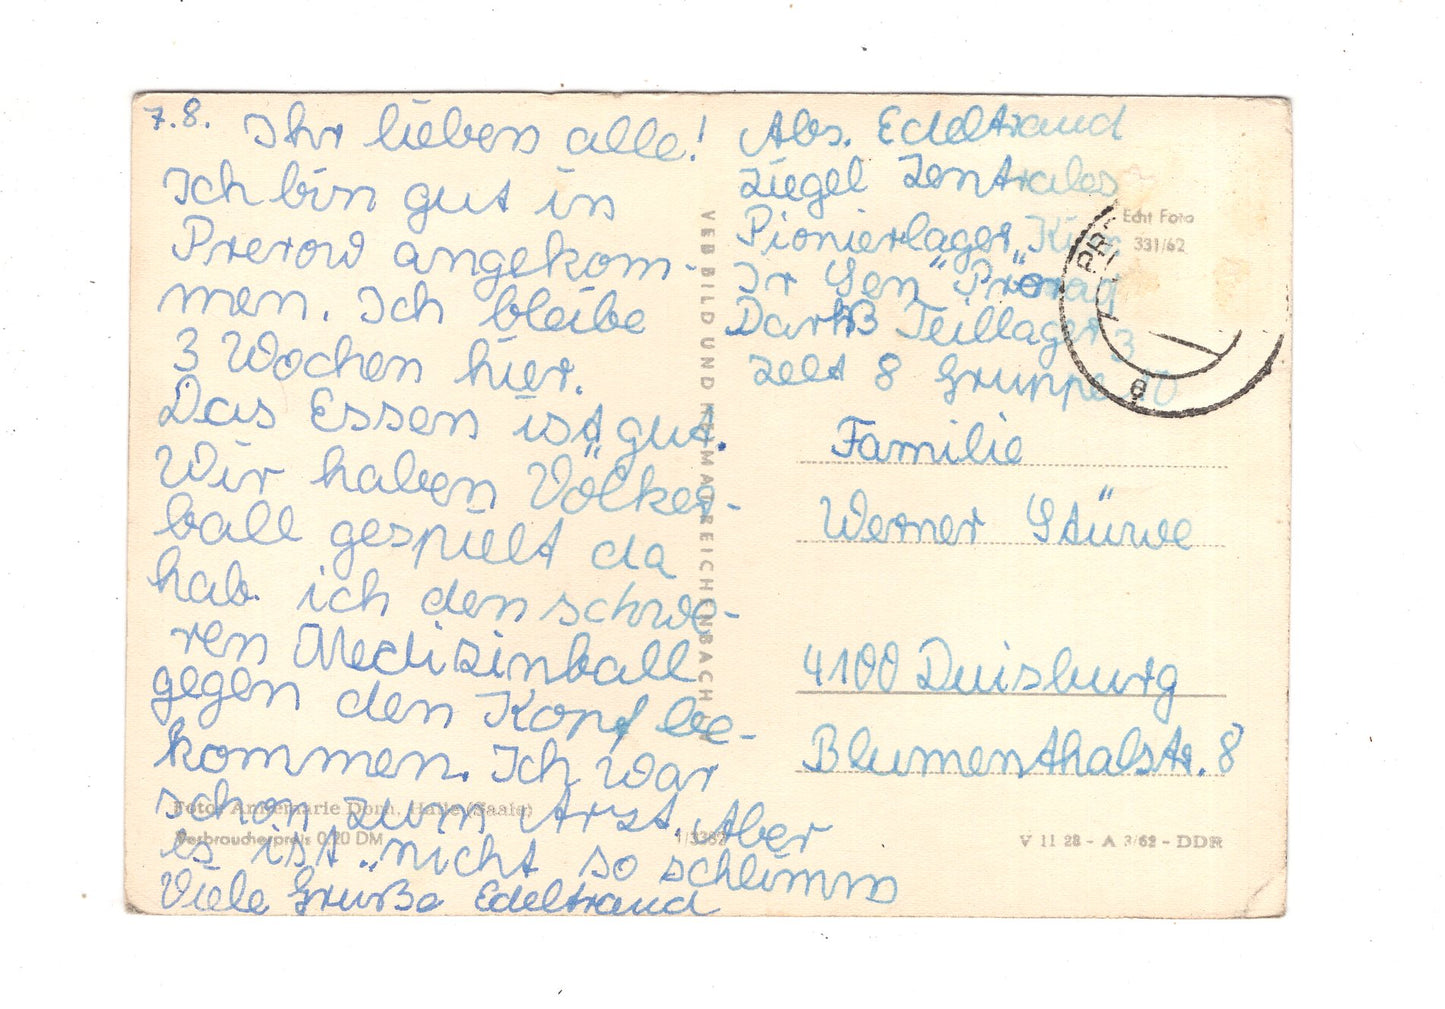 7.8. Ihr lieben alle!
Ich bin gut in
Prerow angekom-
men. Ich bleibe
3 Wochen hier.
Das Essen ist gut.
Wir haben Völker-
ball gespielt da
hab ich den schwe-
ren Medizinball
gegen den Kopf be-
kommen. Ich war
schon zum Arzt. Aber
es ist nicht so schlimm
Viele Grüße Edeltraud
Foto: Annemarie Dorn, Halle (Saale)
Verbraucherpreis 0.20 DM
1/3382
VEB BILD UND HEIMAT REICHENBACH
Abs. Edeltraud
Ziegel Zentrales
Pionierlager "Kim
Ir Sen" Prerow
Darß Teillager 3
Zelt 8 Gruppe 10
Echt Foto
331/62
PR
a
Familie
Werner Stüwe
4100 Duisburg
Blumenthalstr. 8
V 11 28 - A 3/62 - DDR